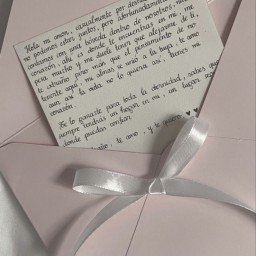 Hola mi amor, casualmente por destino
no podemos estar juntos, pero afortunadamente
contamos con una tienda dentro de nosotros, nuestro
corazón, ahí es donde te encuentras en mi, me
pesa mucho y me duele tener que alejarme de ti,
te extraño más que el pensamiento de no
tenerte aquí, mi alma se unió a la tuya, te amo
aun si la vida no lo quería así, tienes mi
corazón
para toda la eternidad, sabes que
siempre tendrás un hogar en mi, un lugar
donde puedas confiar.
te amo, y te quiero